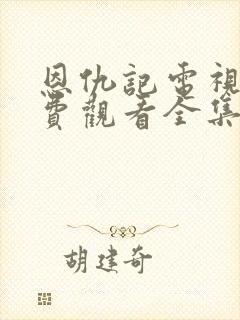 恩仇記電視
費觀看全集
胡建奇